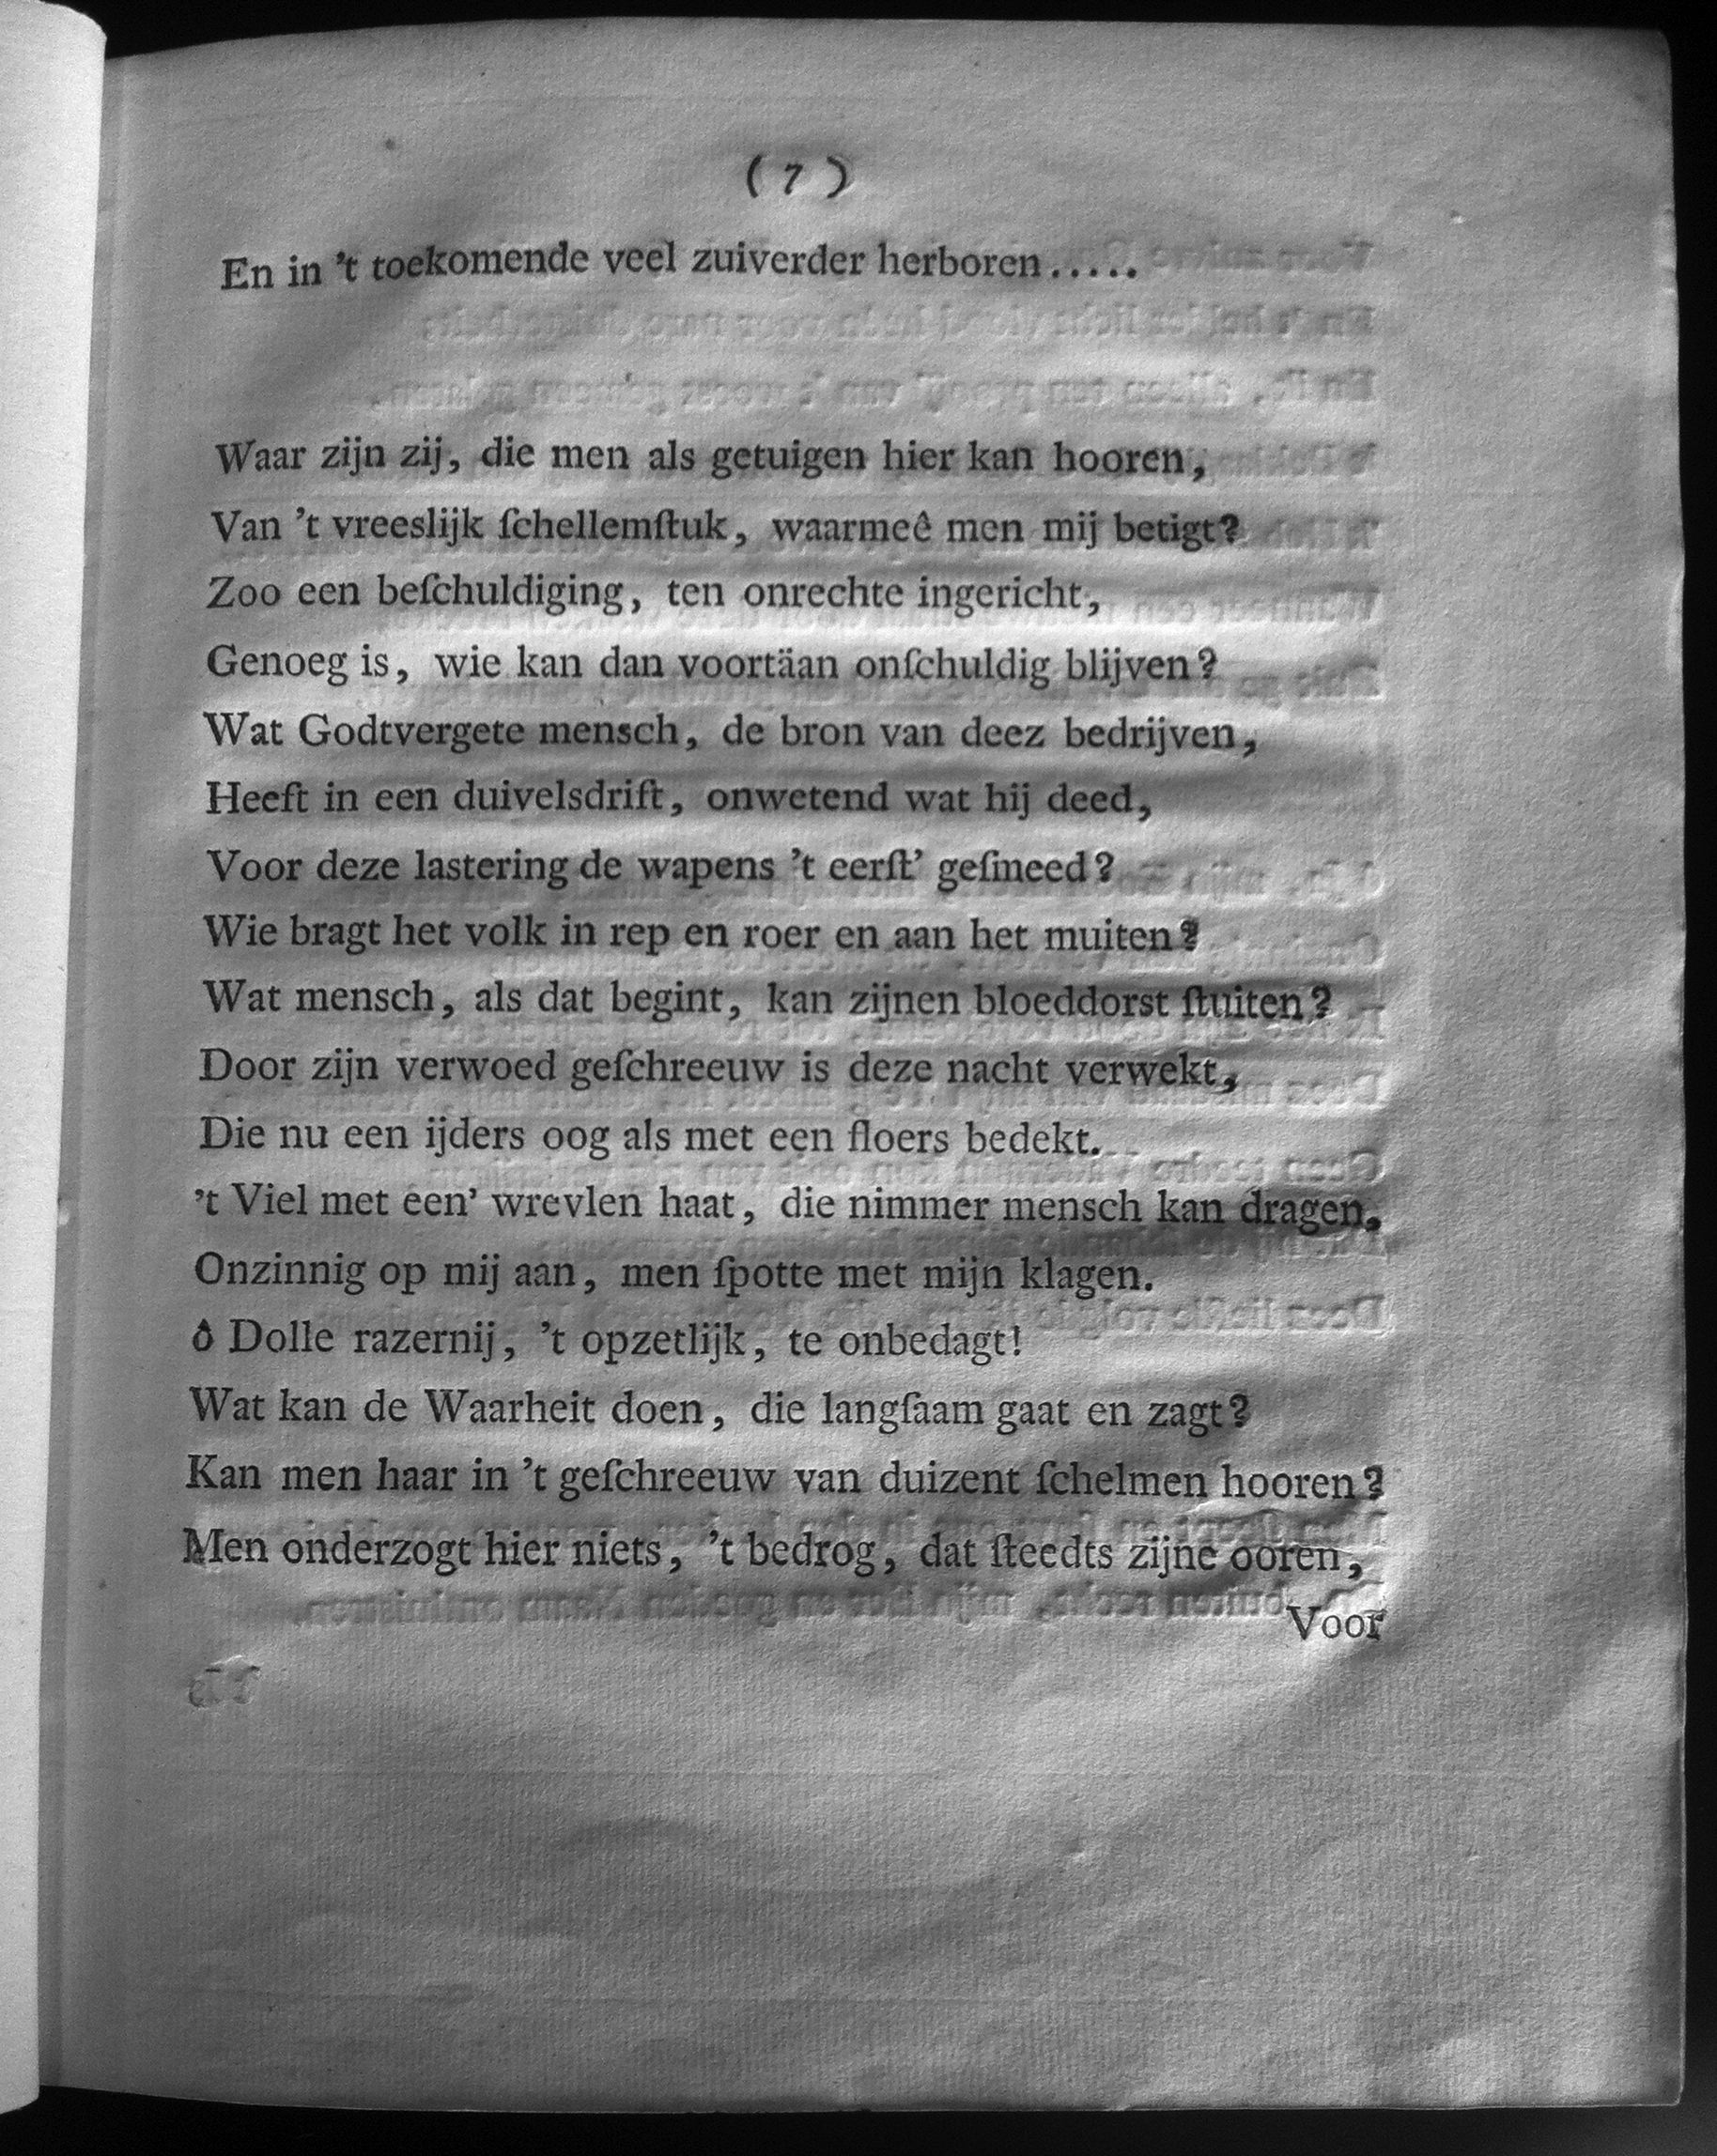 ( 7 )
En in 't toekomende veel zuiverder herboren.....
Waar zijn zij, die men als getuigen hier kan hooren,
Van 't vreeslijk ſchellemſtuk, waarmeê men mij betigt?
Zoo een beſchuldiging, ten onrechte ingericht,
Genoeg is, wie kan dan voortäan onſchuldig blijven?
Wat Godtvergete mensch, de bron van deez bedrijven,
Heeft in een duivelsdrift, onwetend wat hij deed,
Voor deze lastering de wapens 't eerſt' geſmeed?
Wie bragt het volk in rep en roer en aan het muiten?
Wat mensch, als dat begint, kan zijnen bloeddorst ſtuiten?
Door zijn verwoed geſchreeuw is deze nacht verwekt,
Die nu een ijders oog als met een floers bedekt.
't Viel met een' wrevlen haat, die nimmer mensch kan dragen,
Onzinnig op mij aan, men ſpotte met mijn klagen.
ô Dolle razernij, 't opzetlijk, te onbedagt!
Wat kan de Waarheit doen, die langſaam gaat en zagt?
Kan men haar in 't geſchreeuw van duizent ſchelmen hooren?
Men onderzogt hier niets, 't bedrog, dat ſteedts zijne ooren,
Voor